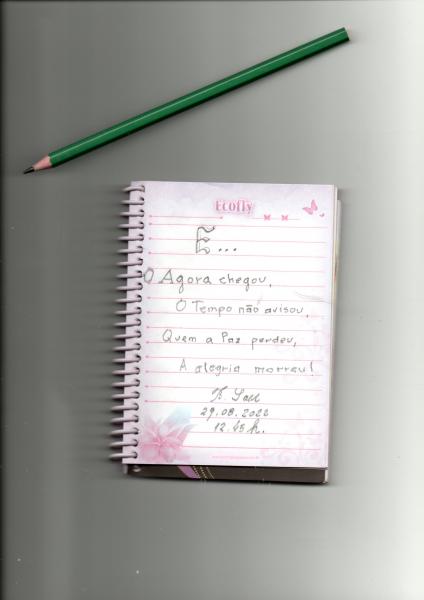 Ecofly
E...
O Agora chegou,
O Tempo não avisou,
Quem a Paz perdeu,
A alegria morreu!
29.08.2022
12.45h.